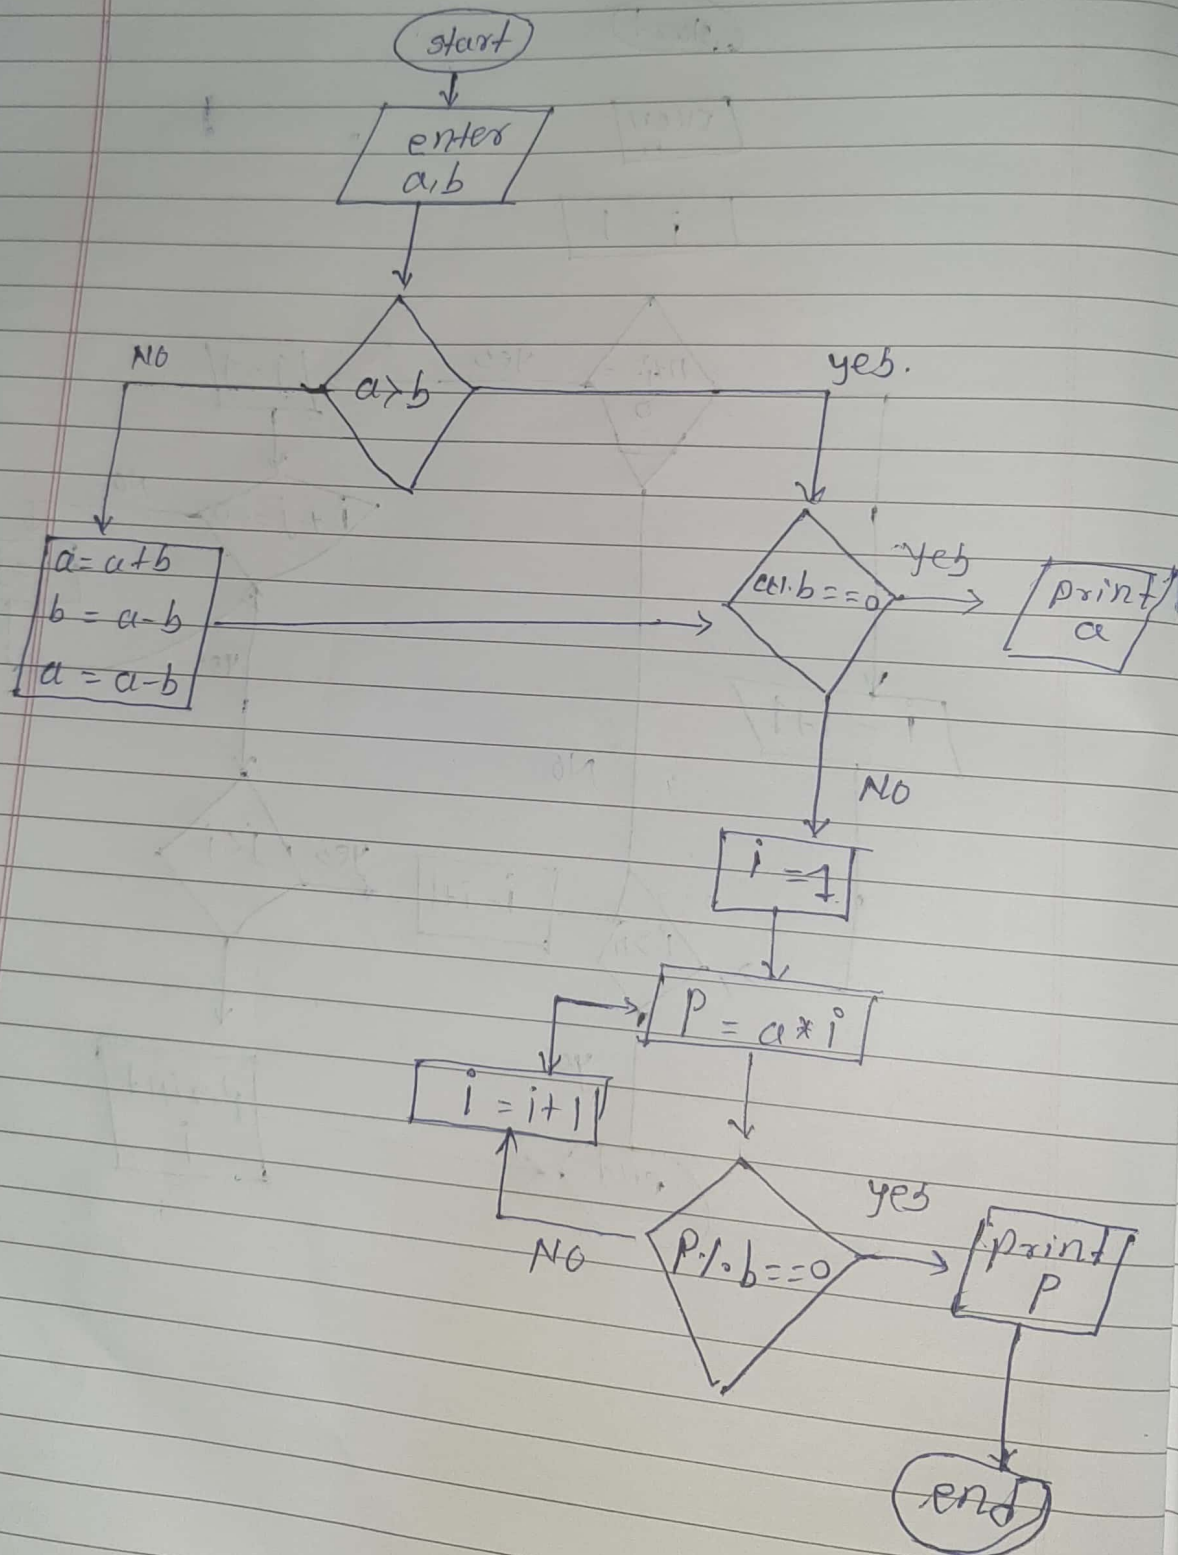 start
enter
a,b
a>b
NO
yes.
a=a+b
b = a-b
a = a-b
a%b==0
yes
print
a
NO
i=1
P = a*i
i = i+1
P%b==0
NO
yes
print
P
end